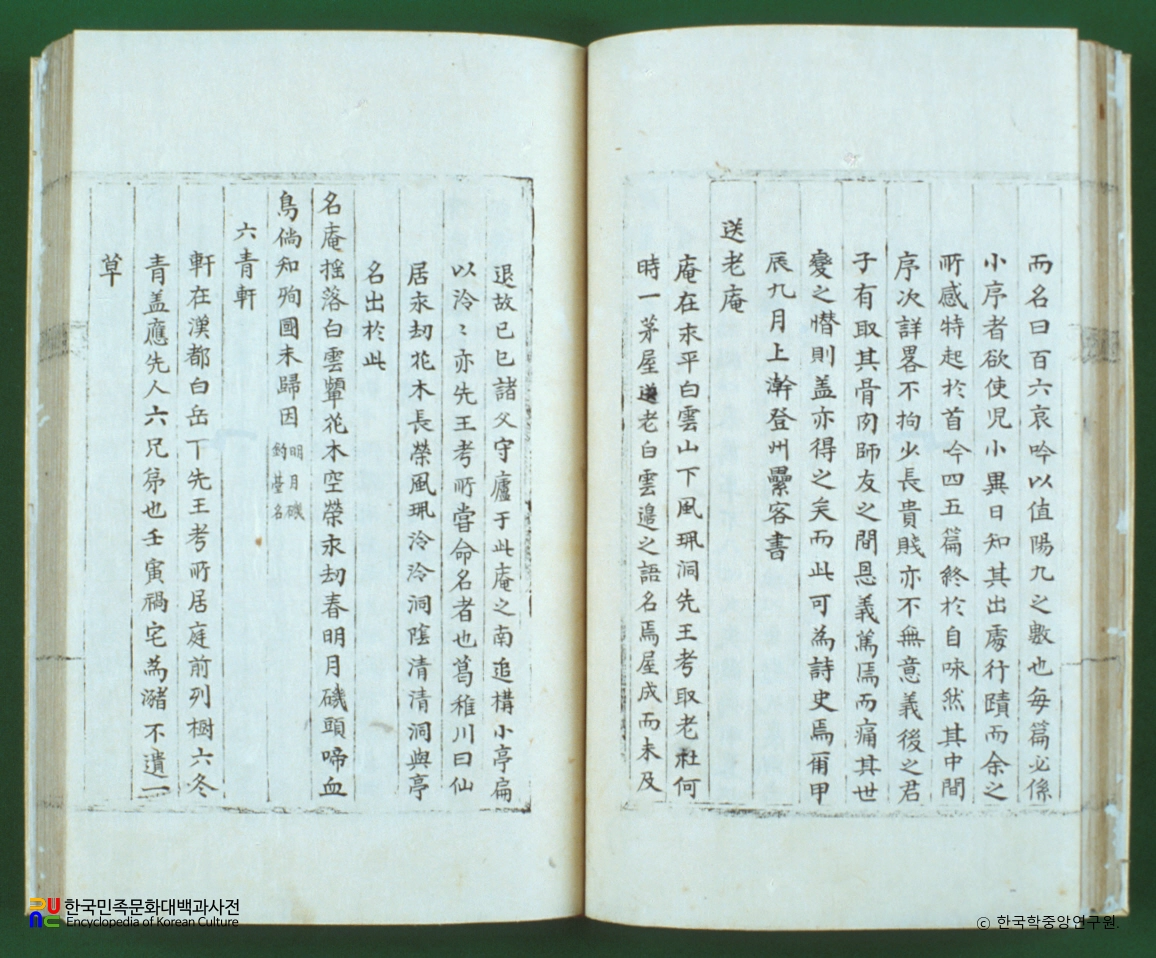 而名曰百六哀吟以值陽九之數也每篇必係
小序者欲使兒小異日知其出處行蹟而余之
所感特起於首今四五篇終於自味然其中間
序次詳畧不拘少長貴賤亦不無意義後之君
子有取其骨肉師友之間恩義篤焉而痛其世
變之憯則盖亦得之矣而此可為詩史焉爾甲
辰九月上澣登州纍客書
送老庵
庵在永平白雲山下風珮洞先王考取老杜何
時一茅屋送老白雲邉之語名焉屋成而未及
退故己巳諸父守廬于此庵之南追構小亭扁
以泠〻亦先王考所嘗命名者也葛稚川曰仙
居永劫花木長榮風珮泠泠洞陰清清洞與亭
名出於此
名庵揺落白雲顰花木空榮永劫春明月磯頭啼血
鳥倘知殉國未歸因 明月磯
釣㙜名
六青軒
軒在漢都白岳下先王考所居庭前列樹六冬
青盖應先人六兄弟也壬寅禍宅為瀦不遺一
草
한국민족문화대백과사전
Encyclopedia of Korean Culture
© 한국학중앙연구원.